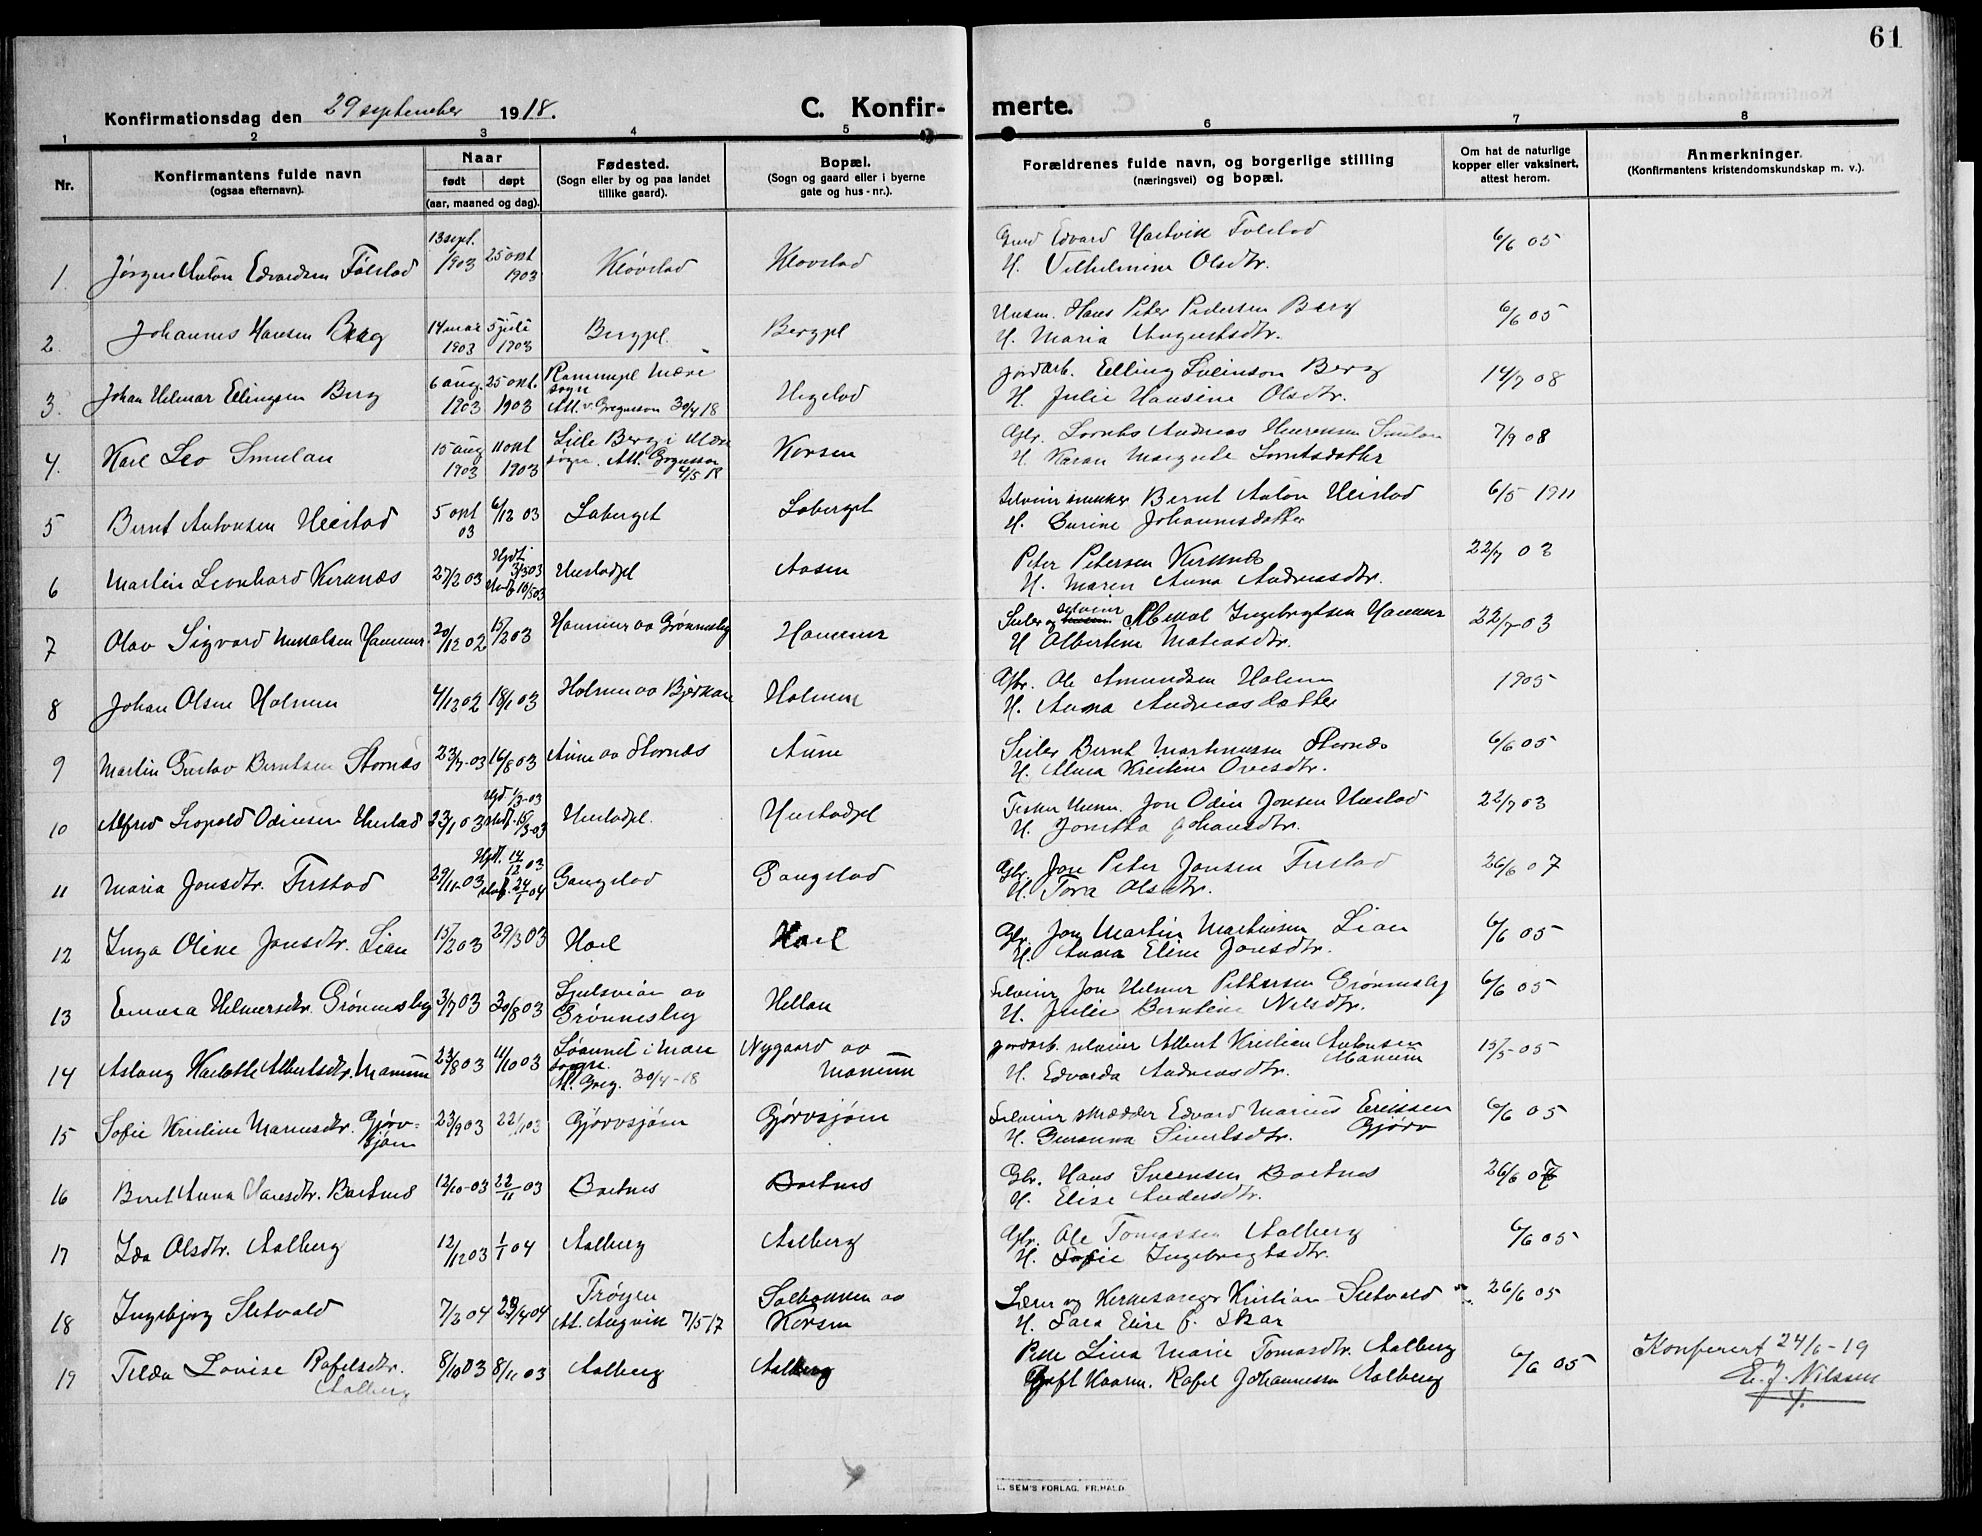 61
Konfirmationsdag den 29 september 1918.
C. Konfir-
merte.
1 2 3 4 5 6 7 8
Nr.
Konfirmantens fulde navn
(ogsaa efternavn).
Naar
født døpt
(aar, maaned og dag).
Fødested.
(Sogn eller by og paa landet
tillike gaard).
Bopæl.
(Sogn og gaard eller i byerne
gate og hus-nr.).
Forældrenes fulde navn, og borgerlige stilling
(næringsvei) og bopæl.
Om hat de naturlige
kopper eller vaksinert,
attest herom.
Anmerkninger.
(Konfirmantens kristendomskundskap m. v.).
1. Jørgen Anton Edvardsen Følstad
13 sept. 1903
25 okt 1903
Kløvstad
Kløvstad
Edvard Hartvik Følstad
H. Vilhelmine Olsdtr.
6/6 05
2. Johannes Hansen Berg
14 mar 1903
5 juli 1903
Bergpl.
Bergpl
Husm. Hans Peter Pedersen Berg
H. Maria Augustsdtr.
6/6 05
3. Johan Helmar Ellingsen Berg
6 aug. 1903
25 okt. 1903
Rammpl Mære
sogn
Att. v. Gregusson 30/4 18
Hegstad
Jordarb. Elling Sveinson Berg
H. Julie Hansine Olsdtr.
14/7 08
4. Karl Leo Smulan
15 aug 1903
11 okt 1903
Lille Berg i Mære
sogn. Att. Gregusson
4/5 18
Korsen
Gbr. Lornts Andreas Smulan
H. Karen Margrete Lorntsdatter
7/9 08
5 Bernt Antonsen Heistad
5 okt 03
6/12 03
Laberget
Laberget
Selveier snekker Bernt Anton Heistad
H. Gurine Johannesdatter
6/5 1911
6 Martin Leonhard Kirknæs
27/2 03
Hjdt 3/3 03
10/5 03
Hustadpl
Aasen
Peter Petersen Kirknæs
H. Maren Anna Andreasdtr.
22/7 03
7 Olav Sigvard Hammer
20/12 02
15/2 03
Hammer av Grønnesby
Hammer
Seiler og selveier Ingebrigtsen Hammer
H Albertine Mateasdtr.
22/7-03
8 Johan Olsen Holmen
4/12 02
18/1 03
Holmen av Bjerkan
Holmen
Gbr. Ole Amundsen Holmen
H. Anna Andreasdatter
1905
9 Martin Gustav Berntsen Stornæs
23/7-03
16/8 03
Aune av Stornæs
Aune
Seiler Bernt Martinussen Stornæs
H. Alma Kristine Ovesdtr.
6/6 05
10 Alfred Leopold Odinsen Hustad
23/1 03
Hjd 1/3-03
15/3-03
Hustadpl.
Hustadpl
Fisker Husm. Jon Odin Jonsen Hustad
H. Jonetta Johansdtr.
22/7 03
11 Maria Jonsdtr. Tustad
29/11-03
Hjdt. 14/12 03
24/1 04
Gangstad
Gangstad
Gbr. Jon Peter Jonsen Tustad
H. Tora Olsdtr.
26/6 07
12 Inga Oline Jonsdtr. Lian
15/2 03
29/3 03
Hoel
Hoel
Gbr. Jon Martin Martinsen Lian
H. Anna Eline Jonsdtr.
6/6 05
13 Emma Helmersdtr. Grønnesby
3/7 03
30/8 03
av
Grønnesby
Hellan
Selveier Jon Helmer Pettersen Grønnesby
H. Julie Berntine Nilsdtr.
6/6 05
14 Aslaug Karlotte Albertsdtr. Manum
23/8 03
11/10 03
i Mære
sogn.
At. Greg. 30/4-18
Nygaard av
Manum
Jordarb. selveier Albert Kristian Antonsen
Manum
H. Edvarda Andreasdtr.
15/5-05
15 Sofie Kristine Mariusdtr. Gjørv-
sjøen
23/9 03
22/11 03
Gjørvsjøen
Gjørvsjøen
Selveier skrædder Edvard Marius Erikssen
Gjørv
H. Gusanna Sivertsdtr.
6/6 05
16 Beret Anna Hansdtr. Bartnes
12/10-03
22/11 03
Bartnes
Bartnes
Gbr. Hans Svensen Bartnes
H. Elise Andersdtr.
26/6 07
17 Ida Olsdtr. Aalberg
12/12 03
1/1 04
Aalberg
Aalberg
Gbr. Ole Tomassen Aalberg
H. Sofie Ingebrigtsdtr.
6/6 05
18 Ingebjørg Sletvold
7/2 04
29/4 04
Trøgen
At. Angvik 7/5 17
Solbonnen av
Korsen
Lærer og Kirkesanger Kristian Sletvold
H. Sara Elise f. Skar
26/6 05
19 Tilda Lovise Rafelsdtr.
Aalberg
8/10 03
8/11 03
Aalberg
Aalberg
Pike Lina Marie Tomasdtr. Aalberg
Gift Rafel Johannessen Aalberg
6/6 05
Konferert 24/6-19
E. J. Nilssen
E. SEM'S FORLAG, FR.HALD